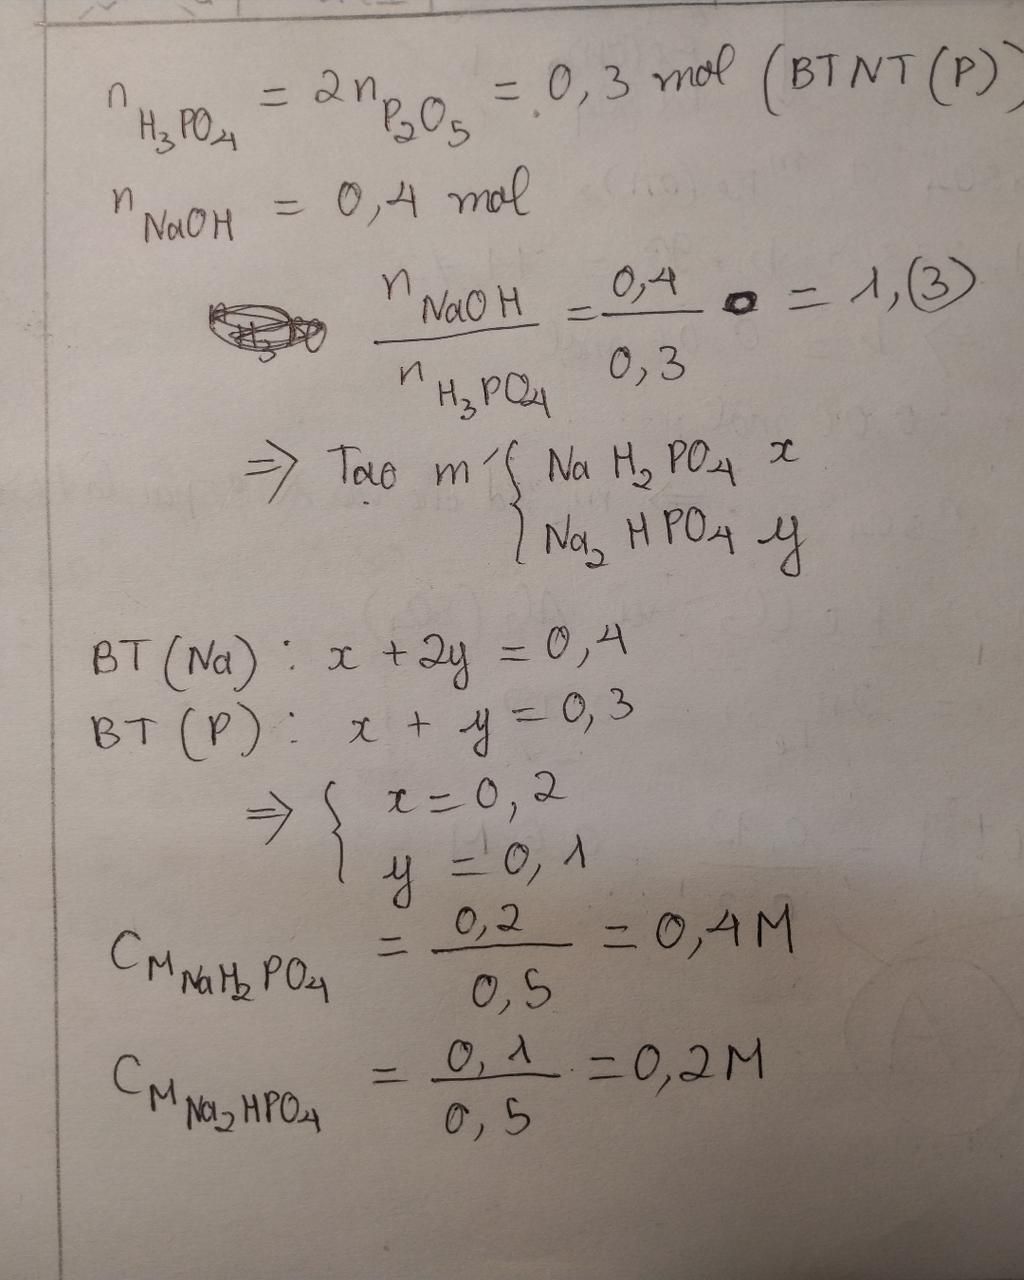 n H₃PO₄ = 2n P₂O₅ = 0,3 mol (BTNT(P))
n NaOH = 0,4 mol
n NaOH / n H₃PO₄ = 0,4 / 0,3 = 1,(3)
⇒ Tạo m' { NaH₂PO₄ x
Na₂HPO₄ y
BT(Na): x + 2y = 0,4
BT(P): x + y = 0,3
⇒ { x = 0,2
y = 0,1
C M NaH₂PO₄ = 0,2 / 0,5 = 0,4M
C M Na₂HPO₄ = 0,1 / 0,5 = 0,2M